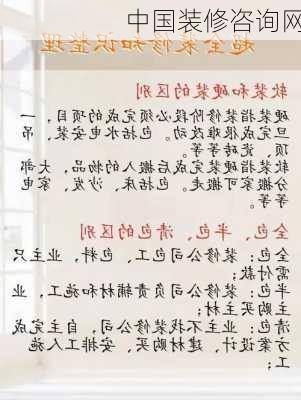 中国装修咨询网
超全装修知识整理
软装和硬装的区别
硬装指装修阶段必须完成的项目，一
旦完成很难改动。包括水电安装、吊
顶、瓷砖等等。
软装指硬装完成后搬入的物品，大部
分搬家可搬走。包括床、沙发、家电
等等。
全包、半包、清包的区别
全包：装修公司包工、包料，业主只
需付款；
半包：装修公司负责辅材和施工，业
主购买主材；
清包：业主不找装修公司，自主完成
方案设计、建材购买、安排工人施
工；